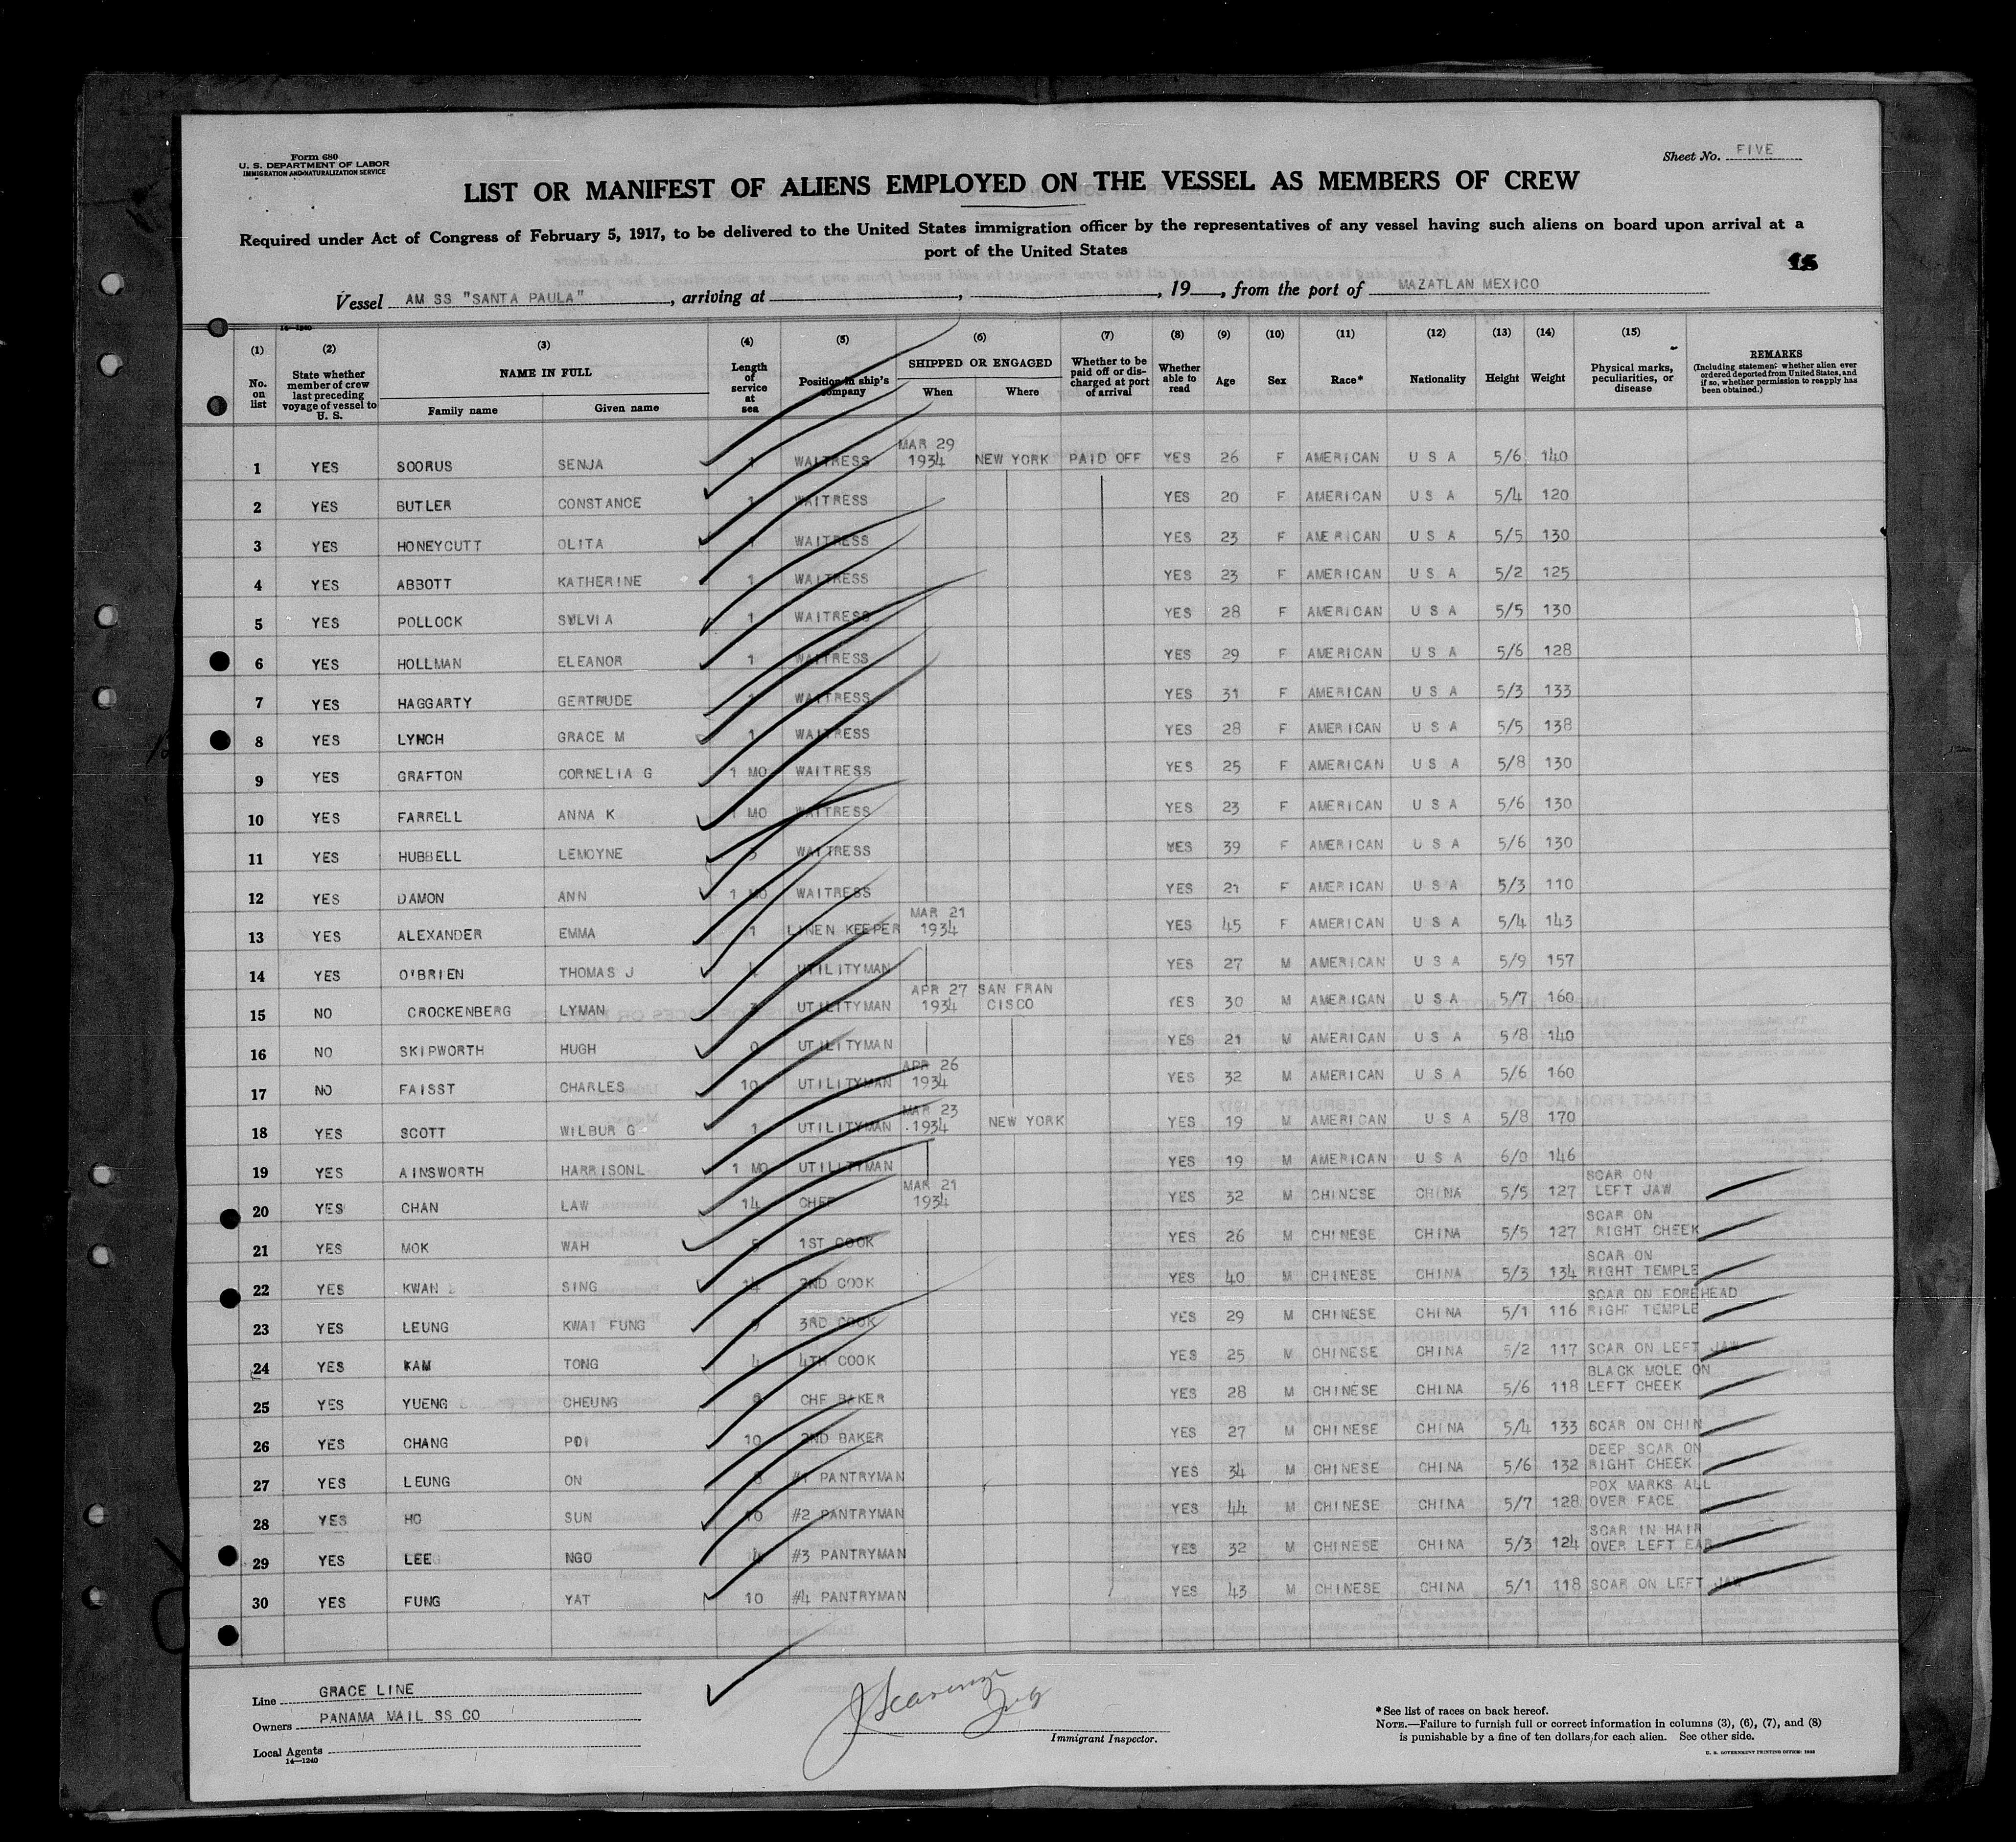 Form 680
U. S. DEPARTMENT OF LABOR
IMMIGRATION AND NATURALIZATION SERVICE
Sheet No. FIVE
LIST OR MANIFEST OF ALIENS EMPLOYED ON THE VESSEL AS MEMBERS OF CREW
Required under Act of Congress of February 5, 1917, to be delivered to the United States immigration officer by the representatives of any vessel having such aliens on board upon arrival at a
port of the United States
15
Vessel AM SS "SANTA PAULA", arriving at , , 19 , from the port of MAZATLAN MEXICO
14—1240
(1) No. on list
(2) State whether member of crew last preceding voyage of vessel to U. S.
(3) NAME IN FULL
Family name Given name
(4) Length of service at sea
(5) Position in ship's company
(6) SHIPPED OR ENGAGED
When Where
(7) Whether to be paid off or discharged at port of arrival
(8) Whether able to read
(9) Age
(10) Sex
(11) Race*
(12) Nationality
(13) Height
(14) Weight
(15) Physical marks, peculiarities, or disease
REMARKS
(Including statement whether alien ever ordered deported from United States, and if so, whether permission to reapply has been obtained.)
1 YES SOORUS SENJA 1 WAITRESS MAR 29 1934 NEW YORK PAID OFF YES 26 F AMERICAN U S A 5/6 140
2 YES BUTLER CONSTANCE 1 WAITRESS YES 20 F AMERICAN U S A 5/4 120
3 YES HONEYCUTT OLITA WAITRESS YES 23 F AMERICAN U S A 5/5 130
4 YES ABBOTT KATHERINE 1 WAITRESS YES 23 F AMERICAN U S A 5/2 125
5 YES POLLOCK SYLVIA 1 WAITRESS YES 28 F AMERICAN U S A 5/5 130
6 YES HOLLMAN ELEANOR 1 WAITRESS YES 29 F AMERICAN U S A 5/6 128
7 YES HAGGARTY GERTRUDE 1 WAITRESS YES 31 F AMERICAN U S A 5/3 133
8 YES LYNCH GRACE M 1 WAITRESS YES 28 F AMERICAN U S A 5/5 138
9 YES GRAFTON CORNELIA G 1 MO WAITRESS YES 25 F AMERICAN U S A 5/8 130
10 YES FARRELL ANNA K 1 MO WAITRESS YES 23 F AMERICAN U S A 5/6 130
11 YES HUBBELL LEMOYNE 3 WAITRESS YES 39 F AMERICAN U S A 5/6 130
12 YES DAMON ANN 1 MO WAITRESS YES 21 F AMERICAN U S A 5/3 110
13 YES ALEXANDER EMMA 1 LINEN KEEPER MAR 21 1934 YES 45 F AMERICAN U S A 5/4 143
14 YES O'BRIEN THOMAS J 4 UTILITYMAN YES 27 M AMERICAN U S A 5/9 157
15 NO CROCKENBERG LYMAN 3 UTILITYMAN APR 27 1934 SAN FRAN CISCO YES 30 M AMERICAN U S A 5/7 160
16 NO SKIPWORTH HUGH 0 UTILITYMAN YES 21 M AMERICAN U S A 5/8 140
17 NO FAISST CHARLES 10 UTILITYMAN APR 26 1934 YES 32 M AMERICAN U S A 5/6 160
18 YES SCOTT WILBUR G 1 UTILITYMAN MAR 23 1934 NEW YORK YES 19 M AMERICAN U S A 5/8 170
19 YES AINSWORTH HARRISONL 1 MO UTILITYMAN YES 19 M AMERICAN U S A 6/0 146
20 YES CHAN LAW 14 CHEF MAR 21 1934 YES 32 M CHINESE CHINA 5/5 127 SCAR ON LEFT JAW
21 YES MOK WAH 1ST COOK YES 26 M CHINESE CHINA 5/5 127 SCAR ON RIGHT CHEEK
22 YES KWAN SING 14 2ND COOK YES 40 M CHINESE CHINA 5/3 134 SCAR ON RIGHT TEMPLE
23 YES LEUNG KWAI FUNG 3RD COOK YES 29 M CHINESE CHINA 5/1 116 SCAR ON FOREHEAD RIGHT TEMPLE
24 YES KAM TONG 4 4TH COOK YES 25 M CHINESE CHINA 5/2 117 SCAR ON LEFT JAW
25 YES YUENG CHEUNG 6 CHF BAKER YES 28 M CHINESE CHINA 5/6 118 BLACK MOLE ON LEFT CHEEK
26 YES CHANG POI 10 2ND BAKER YES 27 M CHINESE CHINA 5/4 133 SCAR ON CHIN
27 YES LEUNG ON #1 PANTRYMAN YES 34 M CHINESE CHINA 5/6 132 DEEP SCAR ON RIGHT CHEEK
28 YES HO SUN 10 #2 PANTRYMAN YES 44 M CHINESE CHINA 5/7 128 POX MARKS ALL OVER FACE
29 YES LEE NGO 4 #3 PANTRYMAN YES 32 M CHINESE CHINA 5/3 124 SCAR IN HAIR OVER LEFT EAR
30 YES FUNG YAT 10 #4 PANTRYMAN YES 43 M CHINESE CHINA 5/1 118 SCAR ON LEFT JAW
Line GRACE LINE
Owners PANAMA MAIL SS CO
Local Agents
14—1240
Immigrant Inspector.
*See list of races on back hereof.
NOTE.—Failure to furnish full or correct information in columns (3), (6), (7), and (8)
is punishable by a fine of ten dollars for each alien. See other side.
U. S. GOVERNMENT PRINTING OFFICE: 1933